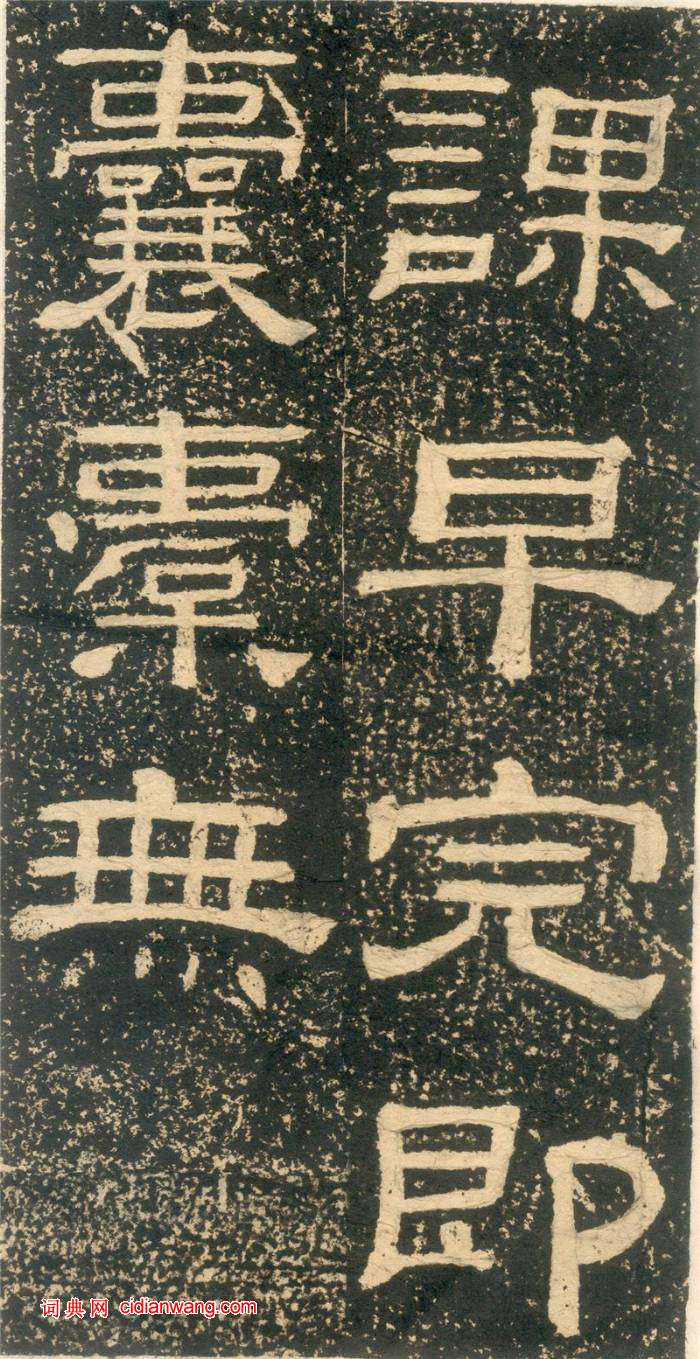 課早完即
囊橐無
词典网 cidianwang.com